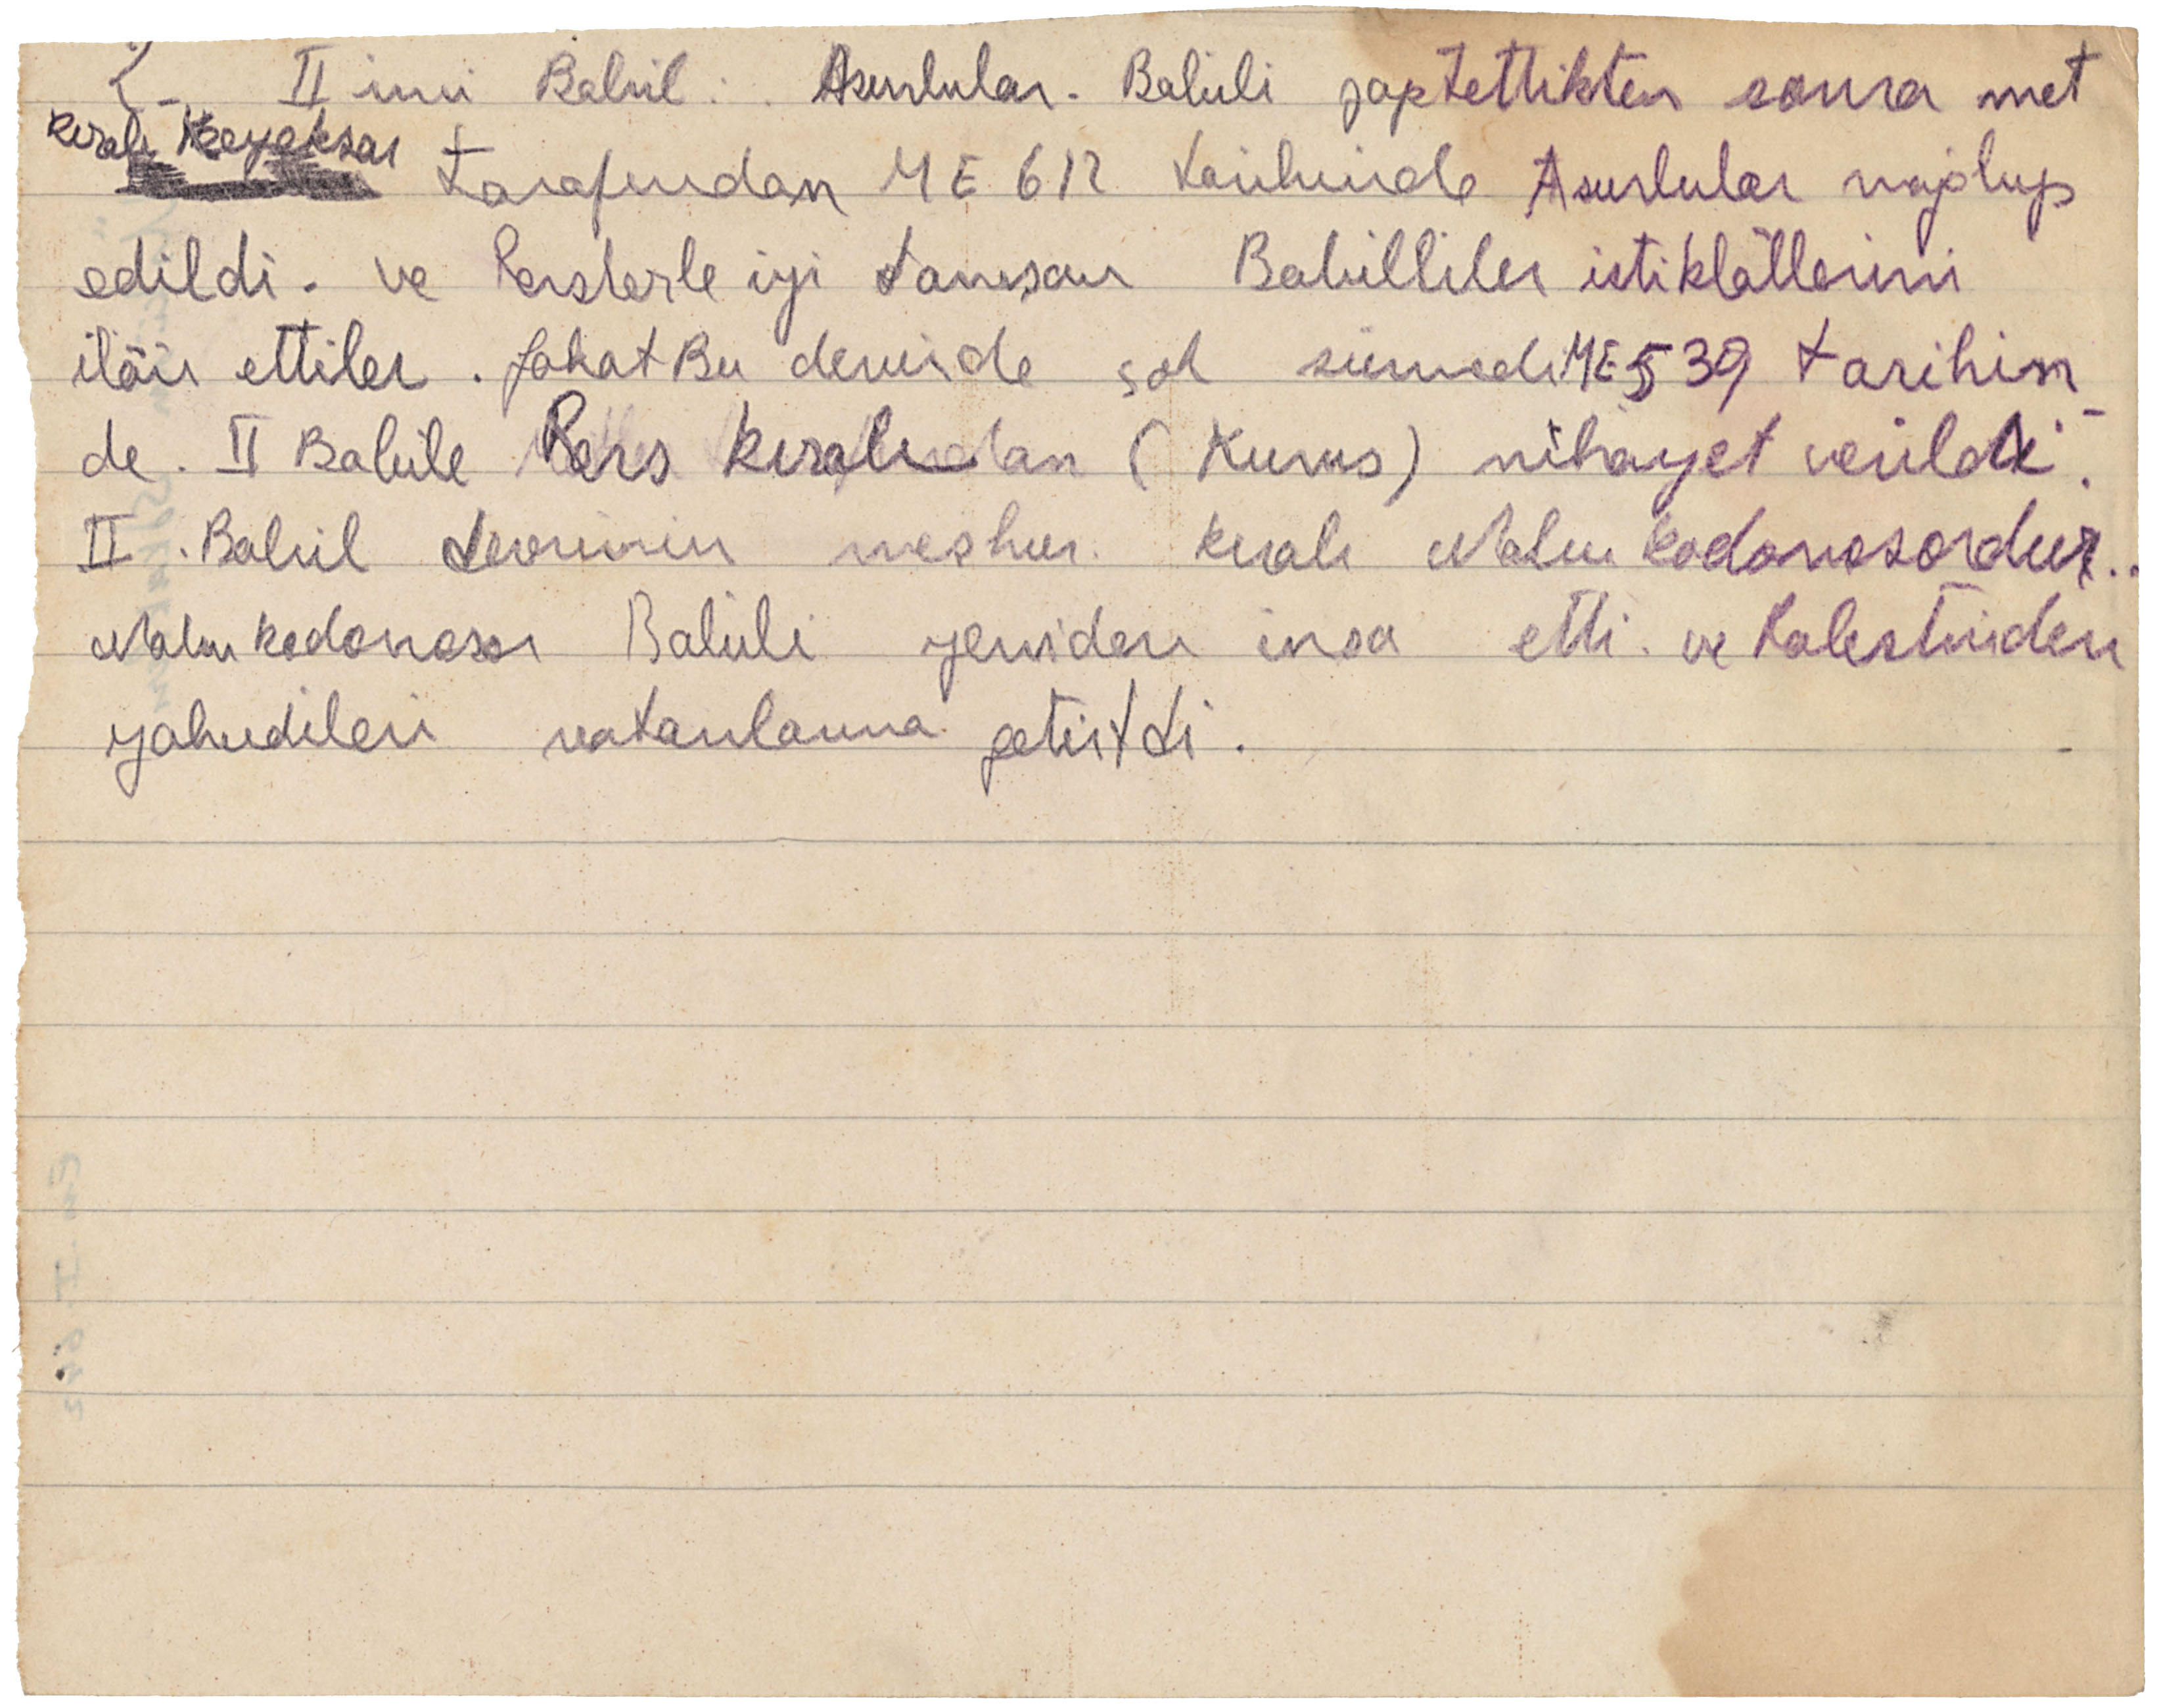 2- II inci Babil : Asurlular. Babili zaptettikten sonra met
kıralı Keyaksar tarafından ME 612 tarihinde Asurlular mağlup
edildi. ve Perslerle iyi tanışan Babilliler istiklâllerini
ilân ettiler. fakat Bu devirde çok sürmedi ME 539 tarihin
de. II Babile Pers kıralı (Kurus) nihayet verildi.
II. Babil devrinin meşhur. kıralı Nabukodonosordur..
Nabukodonosor Babili yeniden inşa etti. ve Falestinden
yahudileri vatanlarına getirtdi.